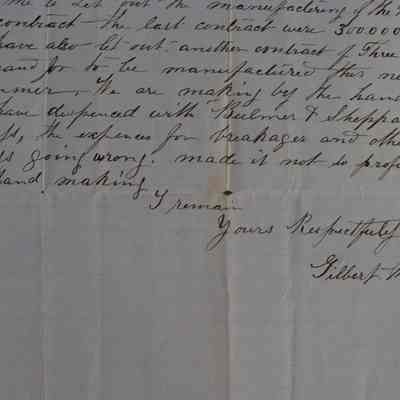 me to let out the manufacturing of the
contract the last contract were 300.000
have also let out another contract of Three
sand for to be manufactured this
mmer, We are making by the hand
have despenced with Bulmer & Sheppa
s, the expences for breakages and othe
s going wrong. made it not so profi
hand making
I remain
Yours Respectfully
Gilbert